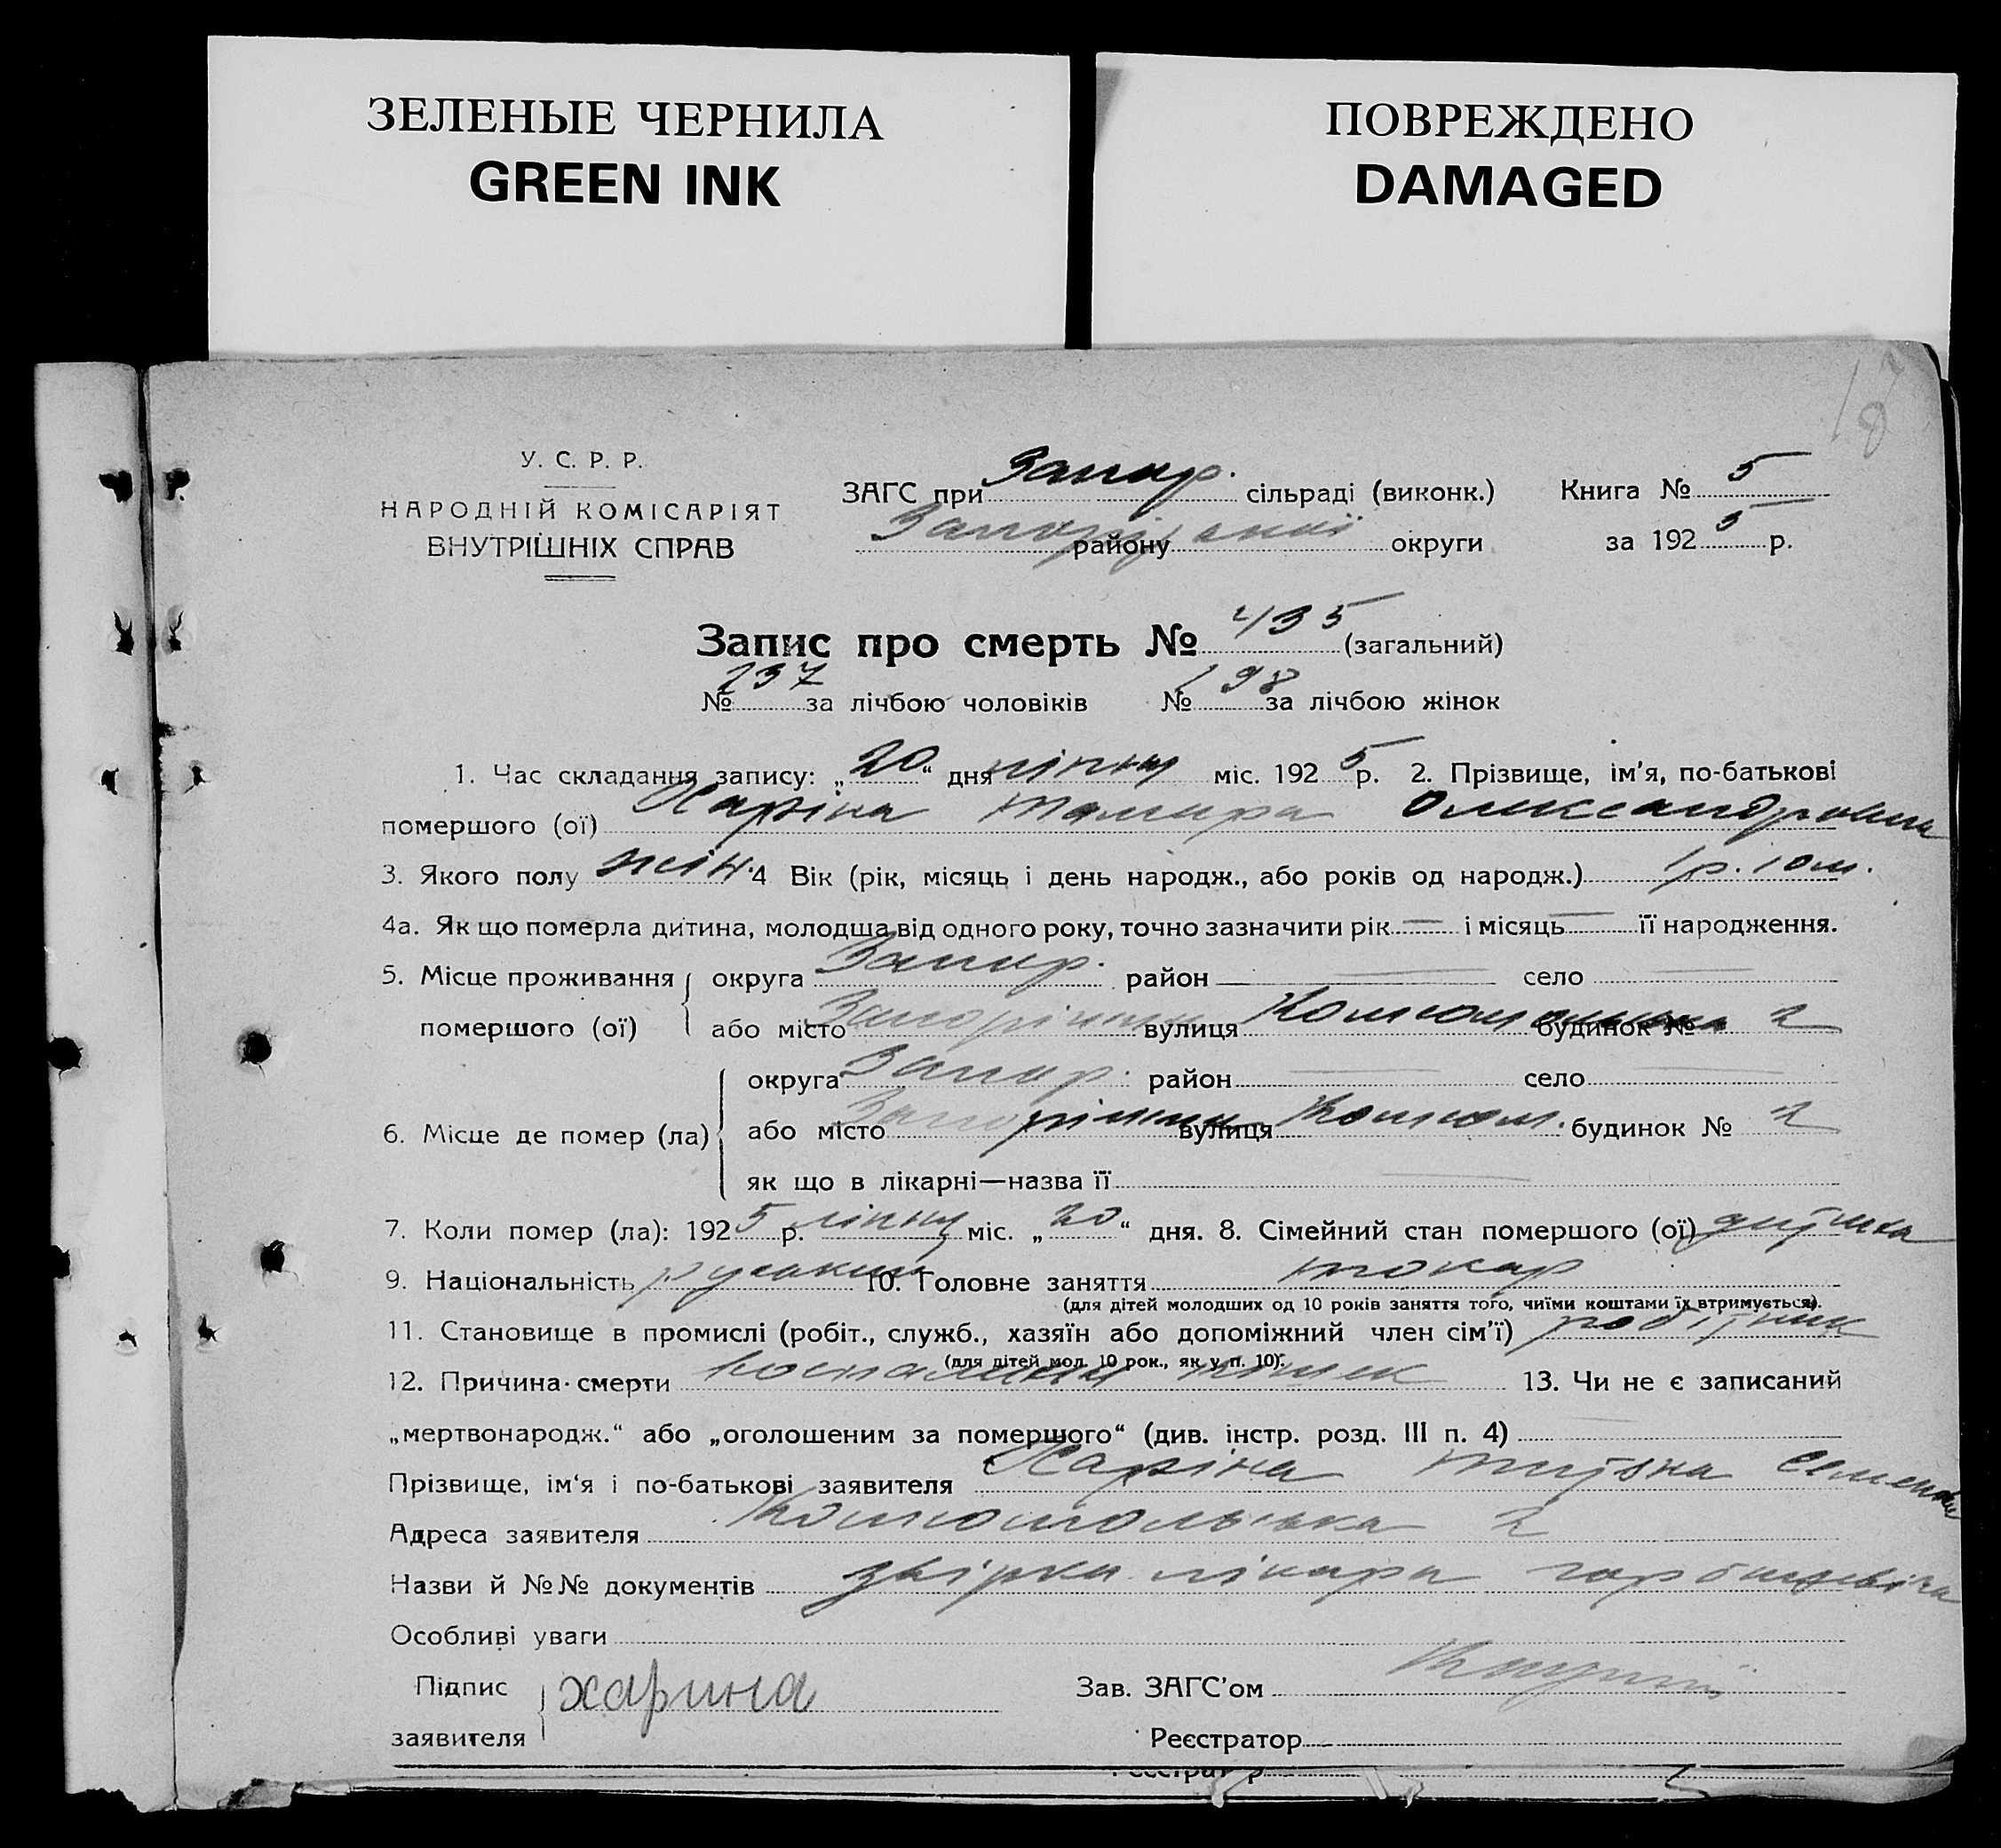 ЗЕЛЕНЫЕ ЧЕРНИЛА
GREEN INK
ПОВРЕЖДЕНО
DAMAGED
18
У. С. Р. Р.
НАРОДНІЙ КОМІСАРІЯТ
ВНУТРІШНІХ СПРАВ
ЗАГС при Запор. сільраді (виконк.)
Запорізької району округи
Книга № 5
за 1925 р.
Запис про смерть № 435 (загальний)
№ 237 за лічбою чоловіків № 198 за лічбою жінок
1. Час складання запису: „20“ дня липня міс. 1925 р. 2. Прізвище, ім’я, по-батькові
помершого (ої) Харіна Тамара Олександровна
3. Якого полу жін. 4 Вік (рік, місяць і день народж., або років од народж.) 1 р. 10 м.
4а. Як що померла дитина, молодша від одного року, точно зазначити рік — і місяць — її народження.
5. Місце проживання помершого (ої) округа Запор. район — село —
або місто Запоріжжя вулиця будинок № 2
6. Місце де помер (ла) округа Запор. район — село —
або місто Запоріжжя вулиця будинок № 2
як що в лікарні—назва її —
7. Коли помер (ла): 1925 р. липня міс. „20“ дня. 8. Сімейний стан помершого (ої) дитина
9. Національність руський 10. Головне заняття токар
(для дітей молодших од 10 років заняття того, чиїми коштами їх втримується).
11. Становище в промислі (робіт., служб., хазяїн або допоміжний член сім’ї) робітник
(для дітей мол. 10 рок., як у п. 10).
12. Причина смерти кишек 13. Чи не є записаний
„мертвонародж.“ або „оголошеним за помершого“ (див. інстр. розд. III п. 4) —
Прізвище, ім‘я і по-батькові заявителя Харіна
Адреса заявителя 2
Назви й №№ документів лікаря
Особливі уваги
Підпис заявителя харина
Зав. ЗАГС’ом
Реєстратор